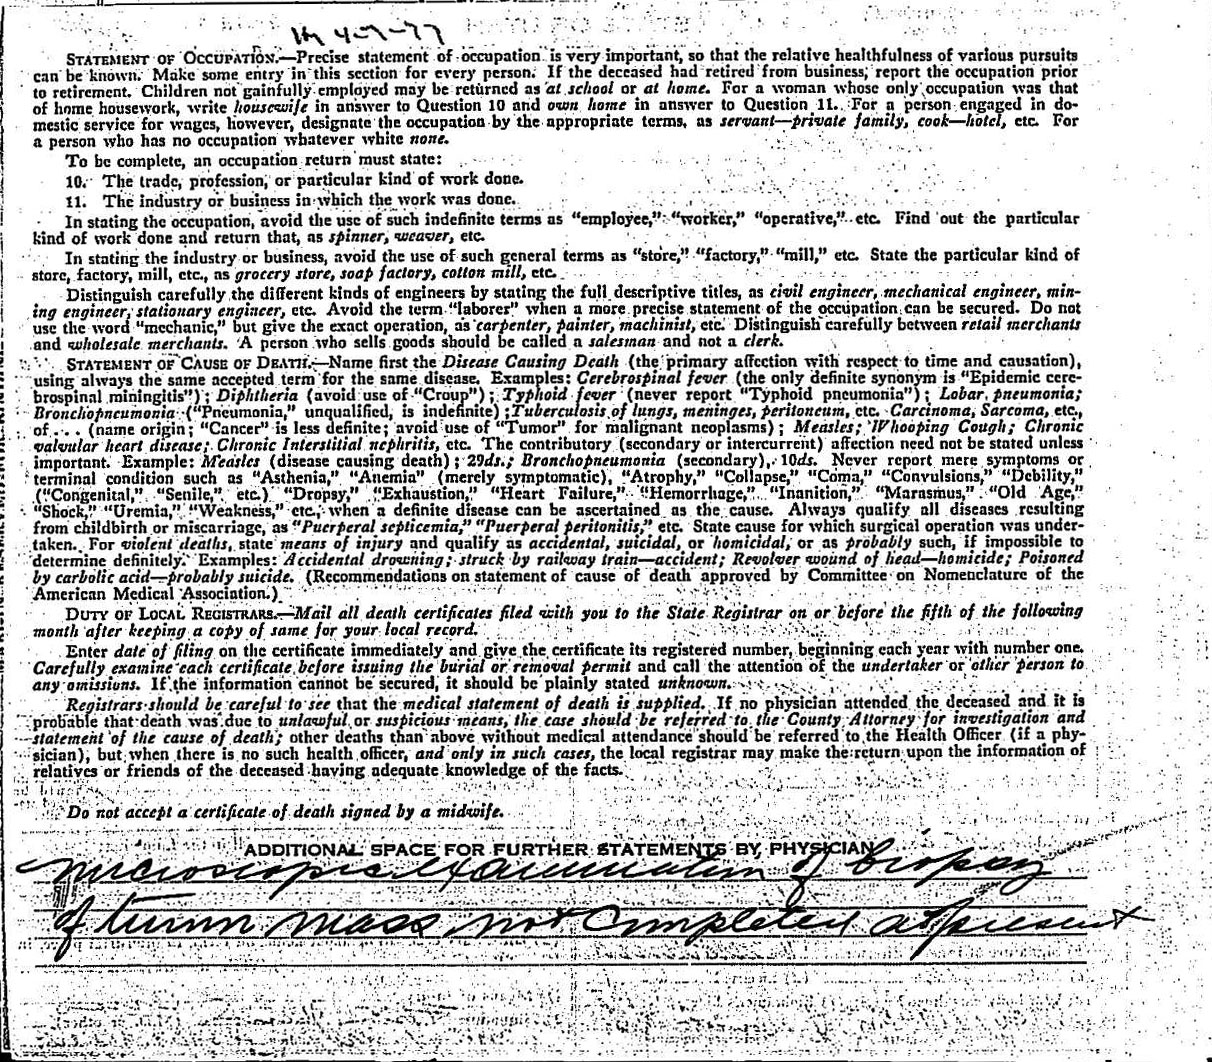 STATEMENT OF OCCUPATION.—Precise statement of occupation is very important, so that the relative healthfulness of various pursuits
can be known. Make some entry in this section for every person. If the deceased had retired from business, report the occupation prior
to retirement. Children not gainfully employed may be returned as at school or at home. For a woman whose only occupation was that
of home housework, write housewife in answer to Question 10 and own home in answer to Question 11. For a person engaged in do-
mestic service for wages, however, designate the occupation by the appropriate terms, as servant—private family, cook—hotel, etc. For
a person who has no occupation whatever white none.
To be complete, an occupation return must state:
10. The trade, profession, or particular kind of work done.
11. The industry or business in which the work was done.
In stating the occupation, avoid the use of such indefinite terms as "employee," "worker," "operative," etc. Find out the particular
kind of work done and return that, as spinner, weaver, etc.
In stating the industry or business, avoid the use of such general terms as "store," "factory," "mill," etc. State the particular kind of
store, factory, mill, etc., as grocery store, soap factory, cotton mill, etc.
Distinguish carefully the different kinds of engineers by stating the full descriptive titles, as civil engineer, mechanical engineer, min-
ing engineer, stationary engineer, etc. Avoid the term "laborer" when a more precise statement of the occupation can be secured. Do not
use the word "mechanic," but give the exact operation, as carpenter, painter, machinist, etc. Distinguish carefully between retail merchants
and wholesale merchants. A person who sells goods should be called a salesman and not a clerk.
STATEMENT OF CAUSE OF DEATH.—Name first the Disease Causing Death (the primary affection with respect to time and causation),
using always the same accepted term for the same disease. Examples: Cerebrospinal fever (the only definite synonym is "Epidemic cere-
brospinal miningitis"); Diphtheria (avoid use of "Croup"); Typhoid fever (never report "Typhoid pneumonia"); Lobar pneumonia;
Bronchopneumonia ("Pneumonia," unqualified, is indefinite); Tuberculosis of lungs, meninges, peritoneum, etc. Carcinoma, Sarcoma, etc.,
of... (name origin; "Cancer" is less definite; avoid use of "Tumor" for malignant neoplasms); Measles; Whooping Cough; Chronic
valvular heart disease; Chronic Interstitial nephritis, etc. The contributory (secondary or intercurrent) affection need not be stated unless
important. Example: Measles (disease causing death); 29ds.; Bronchopneumonia (secondary), 10ds. Never report mere symptoms or
terminal condition such as "Asthenia," "Anemia" (merely symptomatic), "Atrophy," "Collapse," "Coma," "Convulsions," "Debility,"
("Congenital," "Senile," etc.) "Dropsy," "Exhaustion," "Heart Failure," "Hemorrhage," "Inanition," "Marasmus," "Old Age,"
"Shock," "Uremia," "Weakness," etc., when a definite disease can be ascertained as the cause. Always qualify all diseases resulting
from childbirth or miscarriage, as "Puerperal septicemia," "Puerperal peritonitis," etc. State cause for which surgical operation was under-
taken. For violent deaths, state means of injury and qualify as accidental, suicidal, or homicidal, or as probably such, if impossible to
determine definitely. Examples: Accidental drowning; struck by railway train—accident; Revolver wound of head—homicide; Poisoned
by carbolic acid—probably suicide. (Recommendations on statement of cause of death approved by Committee on Nomenclature of the
American Medical Association.)
DUTY OF LOCAL REGISTRARS.—Mail all death certificates filed with you to the State Registrar on or before the fifth of the following
month after keeping a copy of same for your local record.
Enter date of filing on the certificate immediately and give the certificate its registered number, beginning each year with number one.
Carefully examine each certificate before issuing the burial or removal permit and call the attention of the undertaker or other person to
any omissions. If the information cannot be secured, it should be plainly stated unknown.
Registrars should be careful to see that the medical statement of death is supplied. If no physician attended the deceased and it is
probable that death was due to unlawful or suspicious means, the case should be referred to the County Attorney for investigation and
statement of the cause of death; other deaths than above without medical attendance should be referred to the Health Officer (if a phy-
sician), but when there is no such health officer, and only in such cases, the local registrar may make the return upon the information of
relatives or friends of the deceased having adequate knowledge of the facts.
Do not accept a certificate of death signed by a midwife.
ADDITIONAL SPACE FOR FURTHER STATEMENTS BY PHYSICIAN
microscopic examination of biopsy
of tumor mass not completed at present